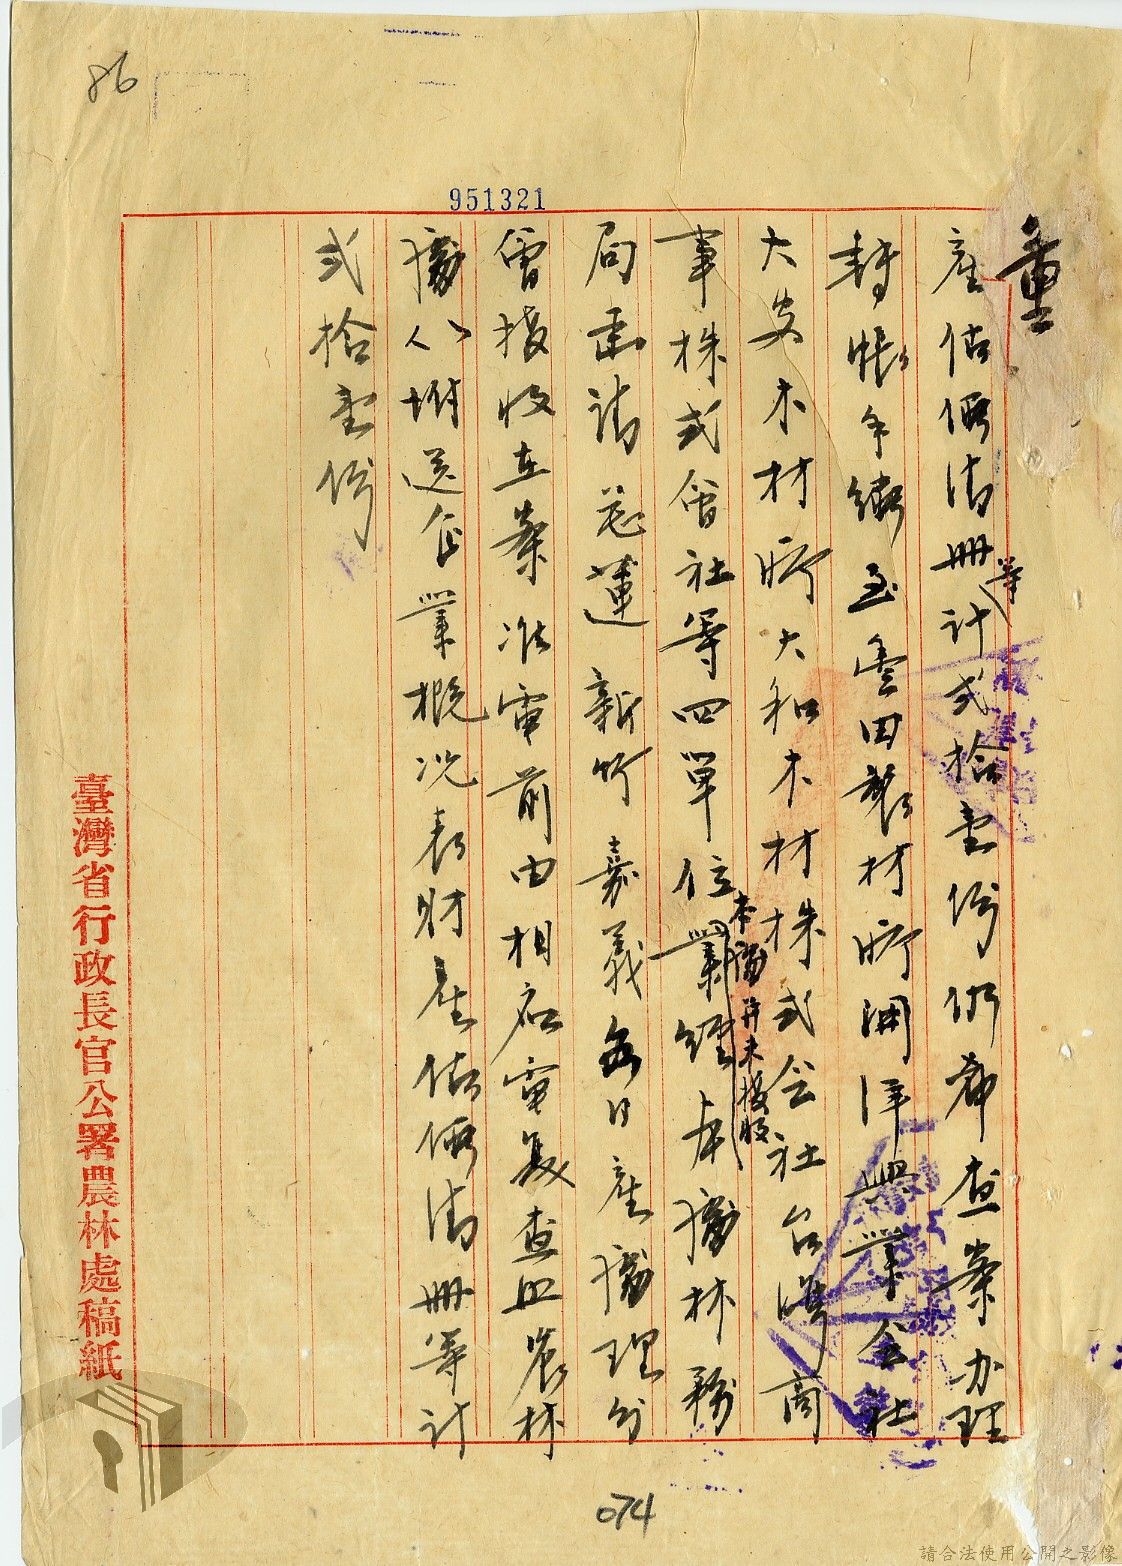 86
951321
重
產估價清冊等計弍拾壹份仍希查案办理
轉帳手續至豐田製材所開洋興業会社
大安木材所大和木材株式会社台灣商
事株式會社等四單位業經本處林務
本處并未接收
局函請花蓮新竹嘉義各日產處理分
會接收在案准電前由相應電复查照農林
處八附送企業概況表財產估價清冊等計
弍拾壹份
臺灣省行政長官公署農林處稿紙
074
請合法使用公開之影像